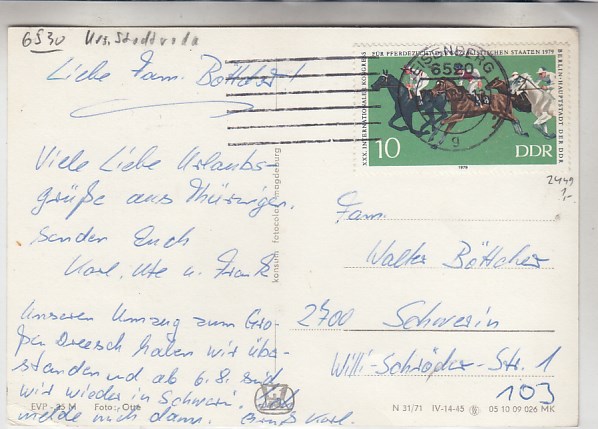 6530 Hrs. Stadtroda
Liebe Fam. Böttcher!
Viele Liebe Urlaubs-
grüße aus Thüringen
senden Euch
Karl, Ute u. Frank
Unseren Umzug zum Gro-
ßen Dreesch haben wir über-
standen und ab 6.8. sind
wir wieder in Schwerin.
melde mich dann. Gruß Karl.
EVP -25 M Foto: Otte
konsum fotocolor magdeburg
XXX. INTERNATIONALER KONGRESS FÜR PFERDEZUCHT DER SOZIALISTISCHEN STAATEN 1979 BERLIN-HAUPTSTADT DER DDR
EISENBERG
6520
g
10 DDR
1979
2449
1,-
Fam.
Walter Böttcher
2700 Schwerin
Willi-Schröder-Str. 1
103
N 31/71 IV-14-45 05 10 09 026 MK